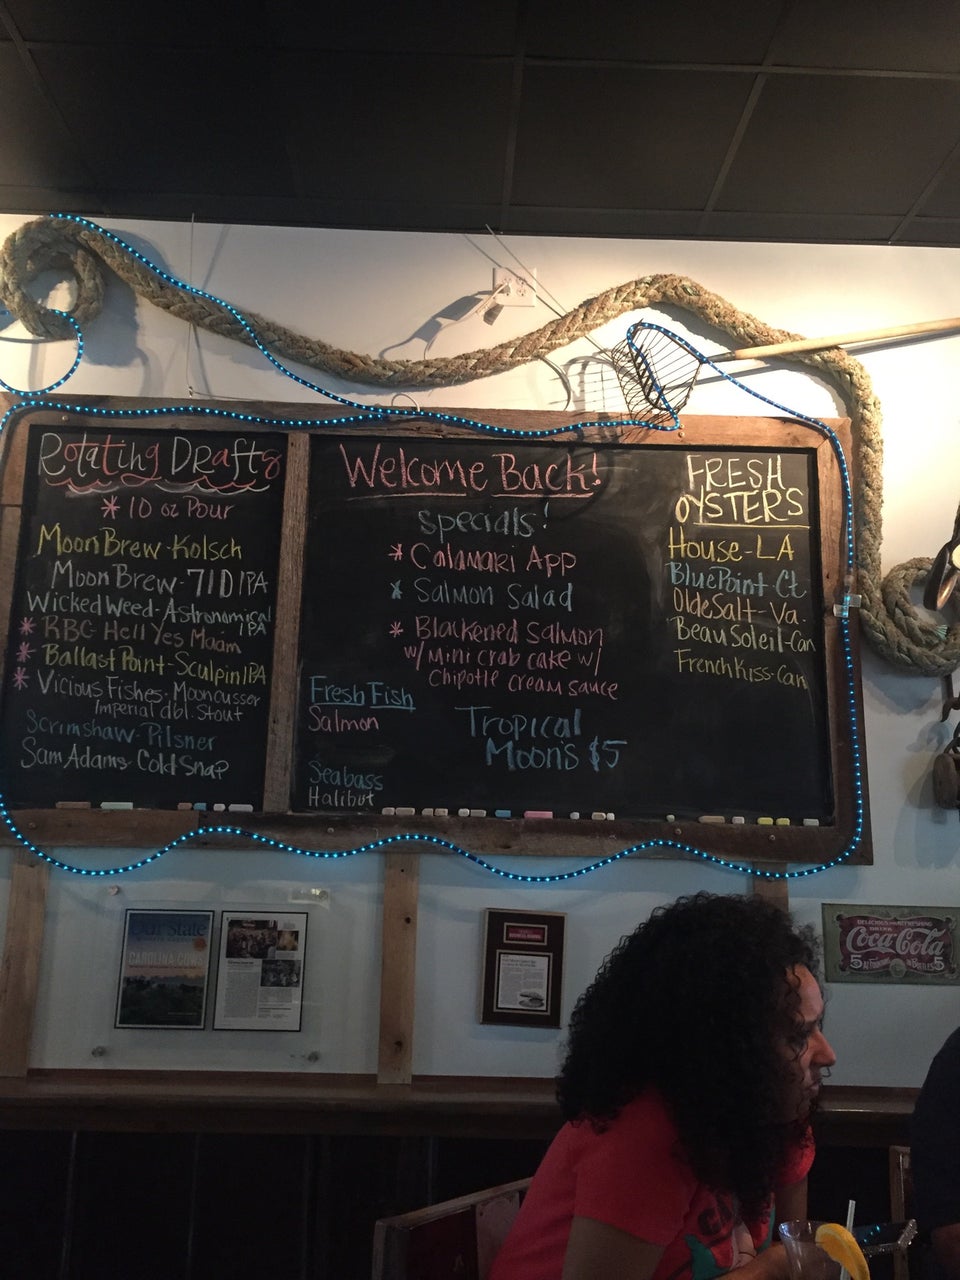 Rotating Drafts
* 10 oz Pour
Moon Brew-Kolsch
Moon Brew-71D IPA
Wicked Weed-Astronomical
IPA
* RBC-Hell Yes Maam
* Ballast Point-Sculpin IPA
* Vicious Fishes-Mooncusser
Imperial dbl. Stout
Scrimshaw-Pilsner
Sam Adams-Cold Snap
Welcome Back!
specials!
* Calamari App
* Salmon Salad
* Blackened Salmon
w/ Mini crab cake w/
Chipotle cream sauce
Fresh Fish
Salmon
Seabass
Halibut
Tropical
Moon's $5
FRESH
OYSTERS
House-LA
BluePoint Ct
Olde Salt-Va.
Beau Soleil-Can
French Kiss-Can
Our State
DELICIOUS AND REFRESHING
DRINK
Coca-Cola
5¢ AT FOUNTAINS IN BOTTLES 5¢